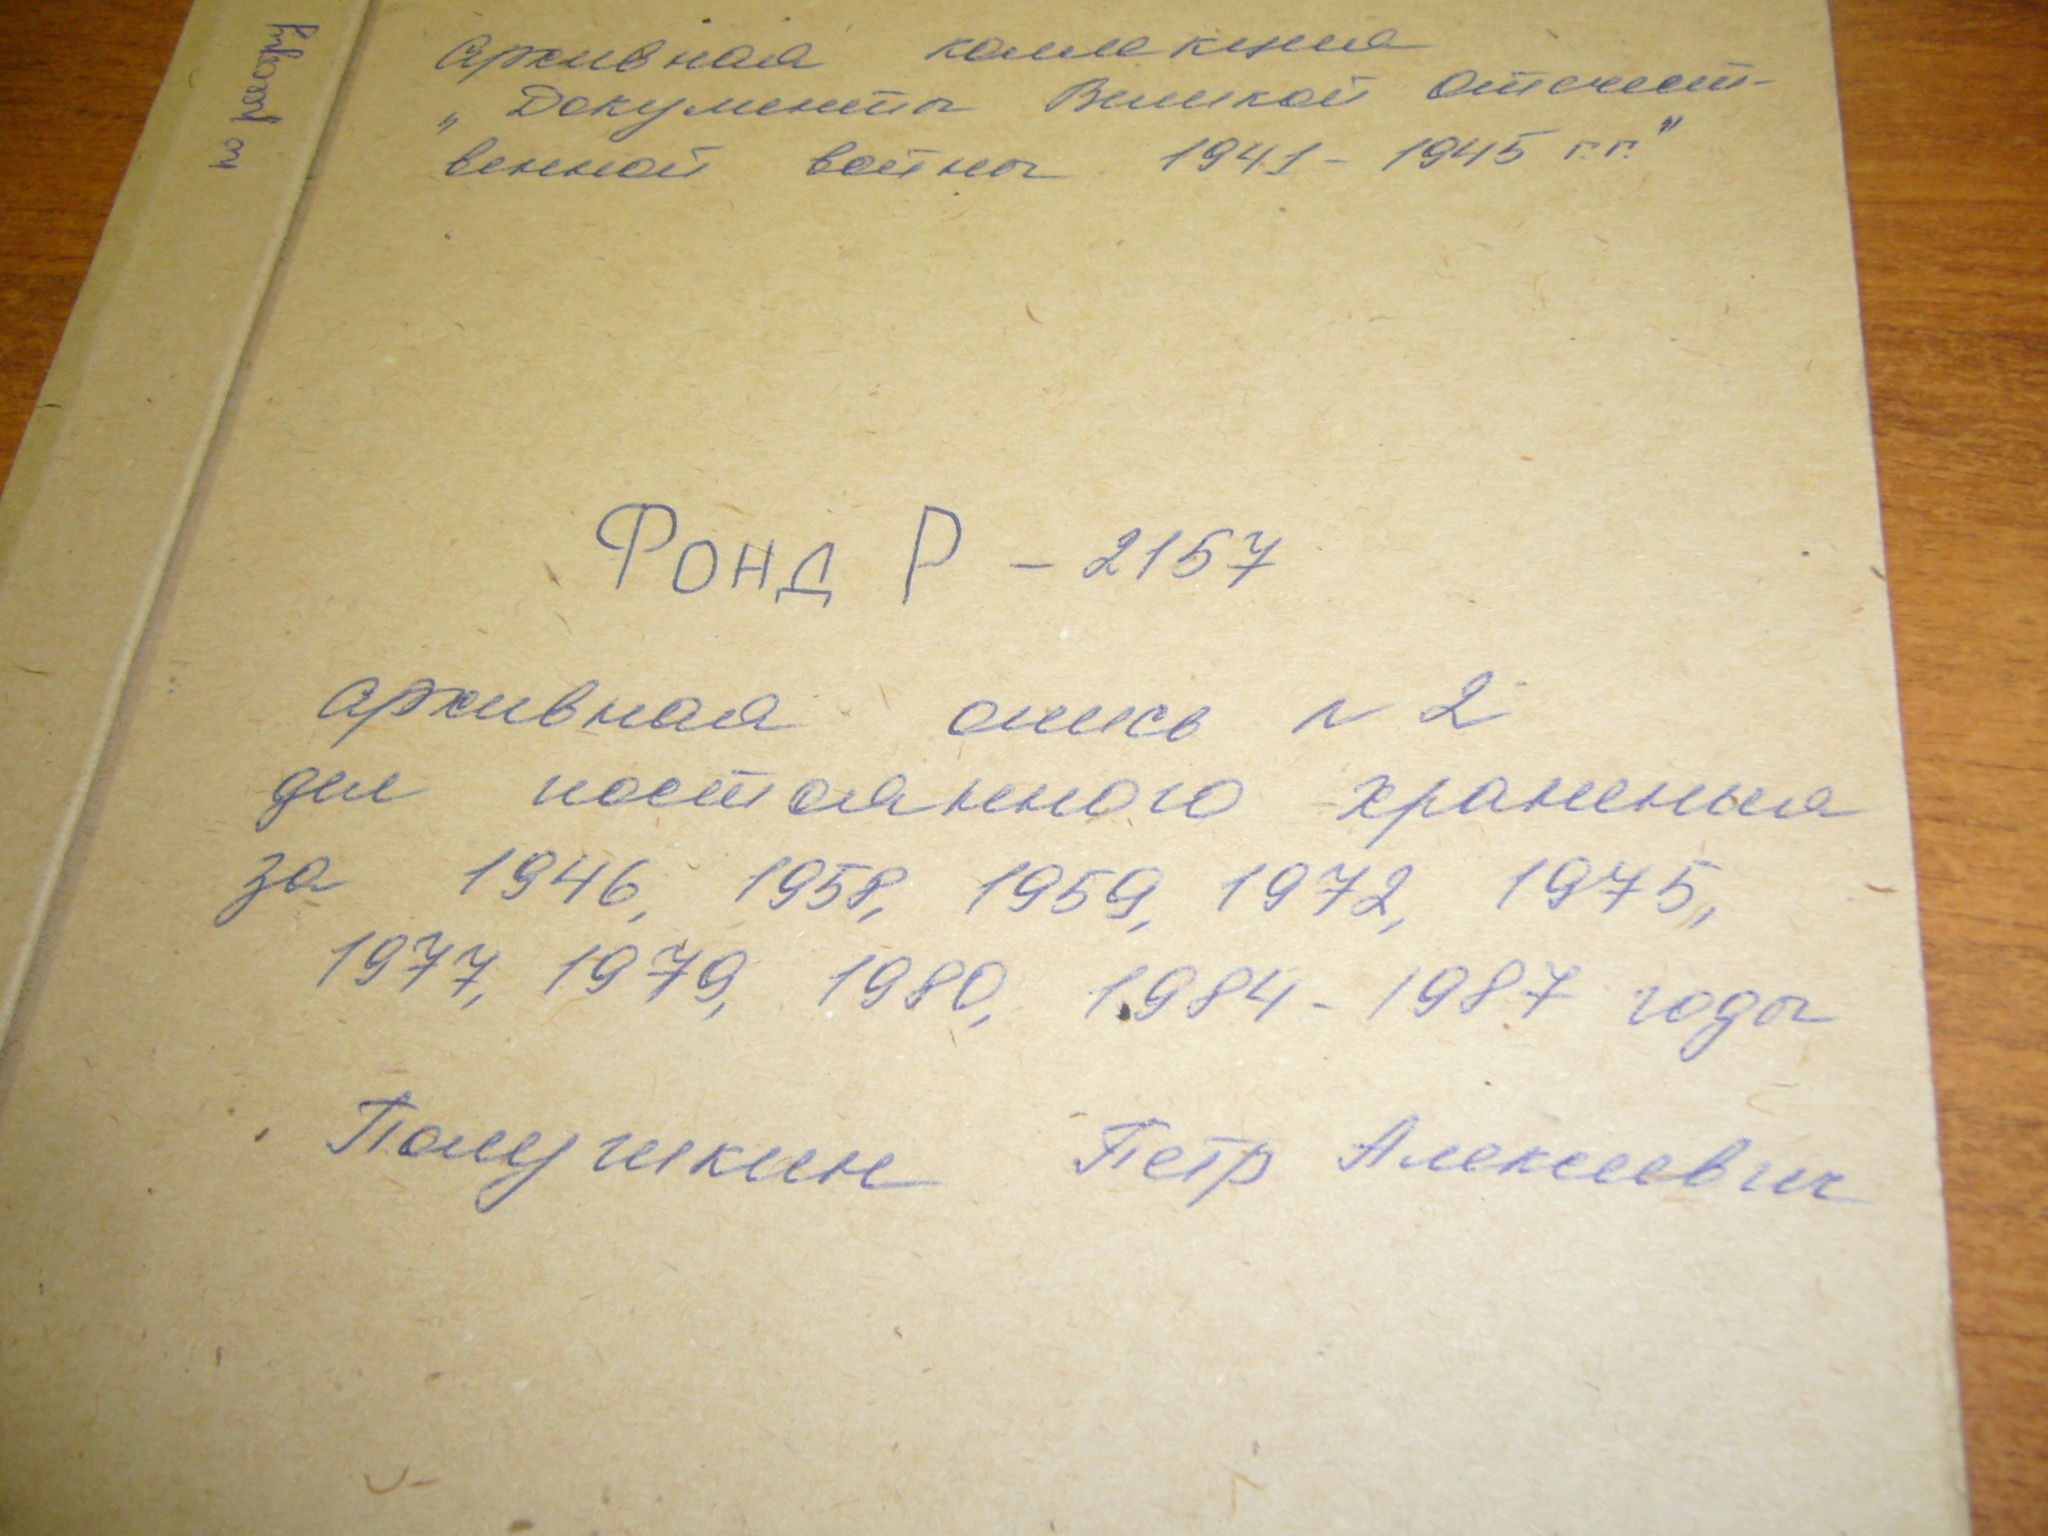 Архивная коллекция
„Документы Великой Отечест-
венной войны 1941-1945 г.г."
Фонд Р-2157
Архивная опись № 2
дел постоянного хранения
за 1946, 1958, 1959, 1972, 1975,
1977, 1979, 1980, 1984-1987 годы
Полушкин Петр Алексеевич